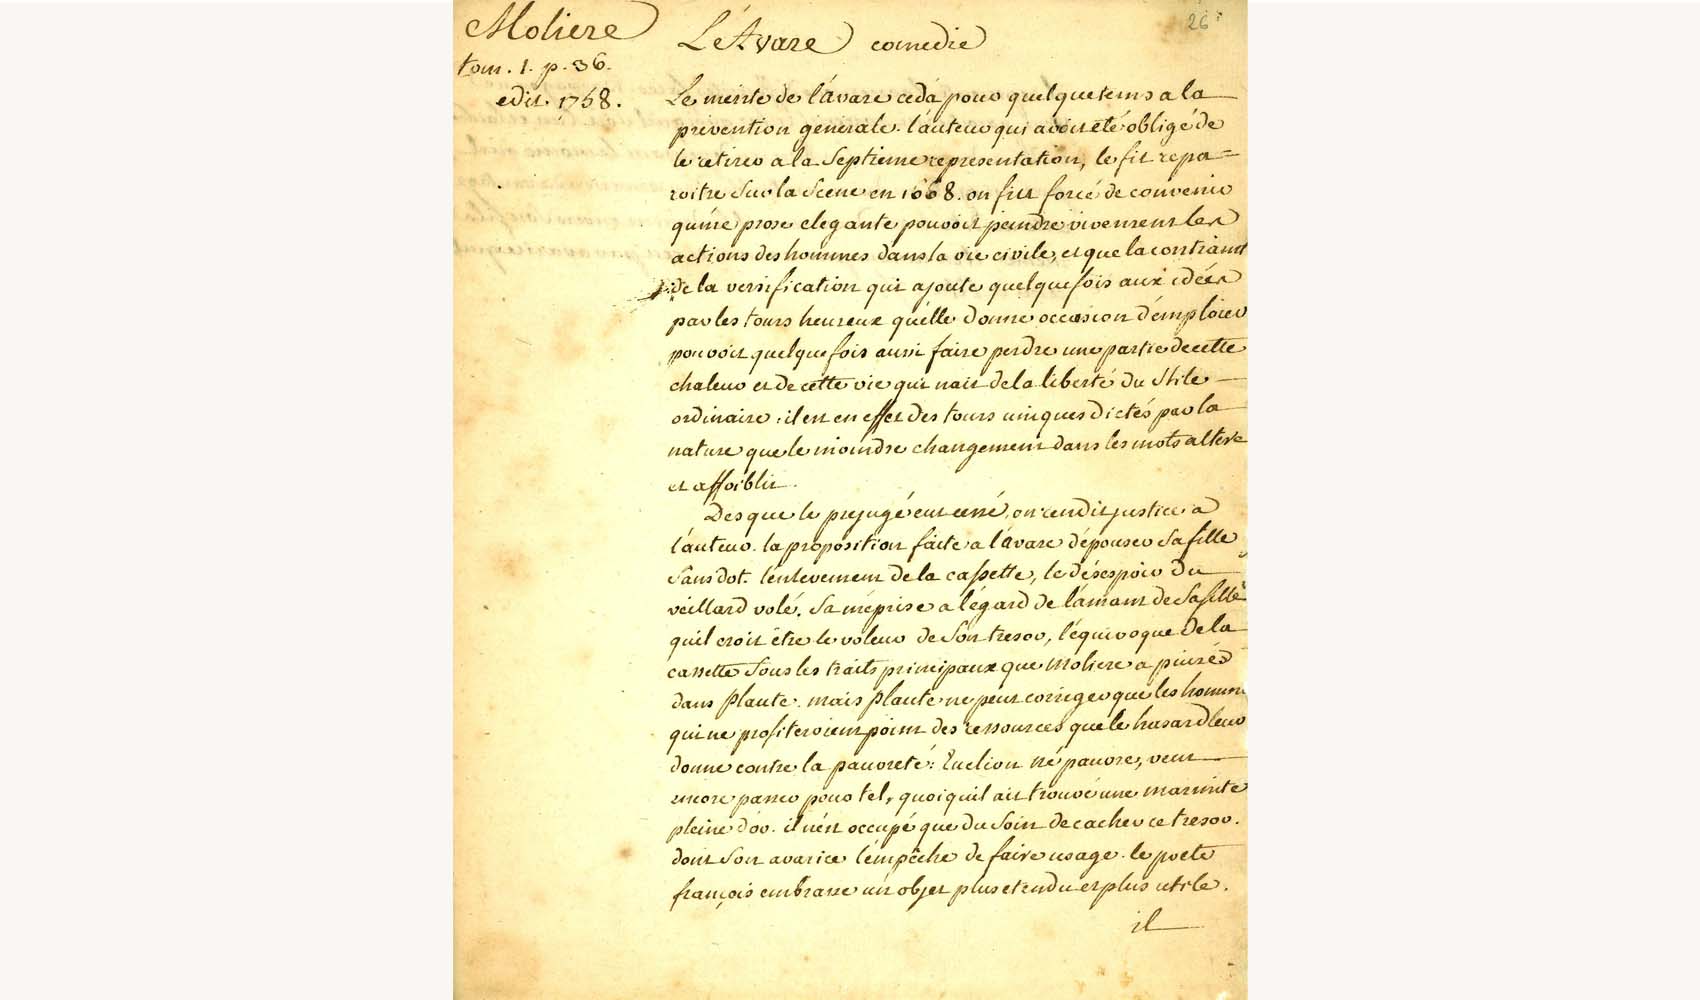 Moliere
tom. 1. p. 36.
edit. 1768.
26
L'éAvare comedie
Le merite de l'avare ceda pour quelque tems a la
prévention generale. l'auteur qui avoit été obligé de
le retirer a la Septieme representation, le fit repa=
roitre Sur la Scene en 1668. on fut forcé de convenir
qu'une prose elegante pouvoit peindre vivement les
actions des hommes dans la vie civile, et que la contraint
de la versification qui ajoute quelquefois aux idées
par les tours heureux qu'elle donne occasion d'emploier
pouvoit quelque fois aussi faire perdre une partie de cette
chaleur et de cette vie qui nait de la liberté du Stile
ordinaire : il est en effet des tours uniques dictés par la
nature que le moindre changement dans les mots altere
et affoiblit.
Des que le prejugé eut cessé, on rendit justice a
l'auteur. la proposition faite a l'avare d'épouser Sa fille
Sans dot. l'enlevement de la cassette, le désespoir du
vieillard volé. Sa méprise a l'égard de l'amant de Sa fille
qu'il croit être le voleur de Son tresor, l'équivoque de la
cassette Sont les traits principaux que Moliere a puisés
dans Plaute. mais Plaute ne peut corriger que les homm
qui ne profiteroient point des ressources que le hasard leur
donne contre la pauvreté : Euclion né pauvre, veut
encore passer pour tel, quoiqu'il ait trouvé une marmite
pleine d'or. il n'est occupé que du Soin de cacher ce tresor.
dont Son avarice l'empêche de faire usage. le poete
françois embrasse un objet plus etendu et plus utile.
il